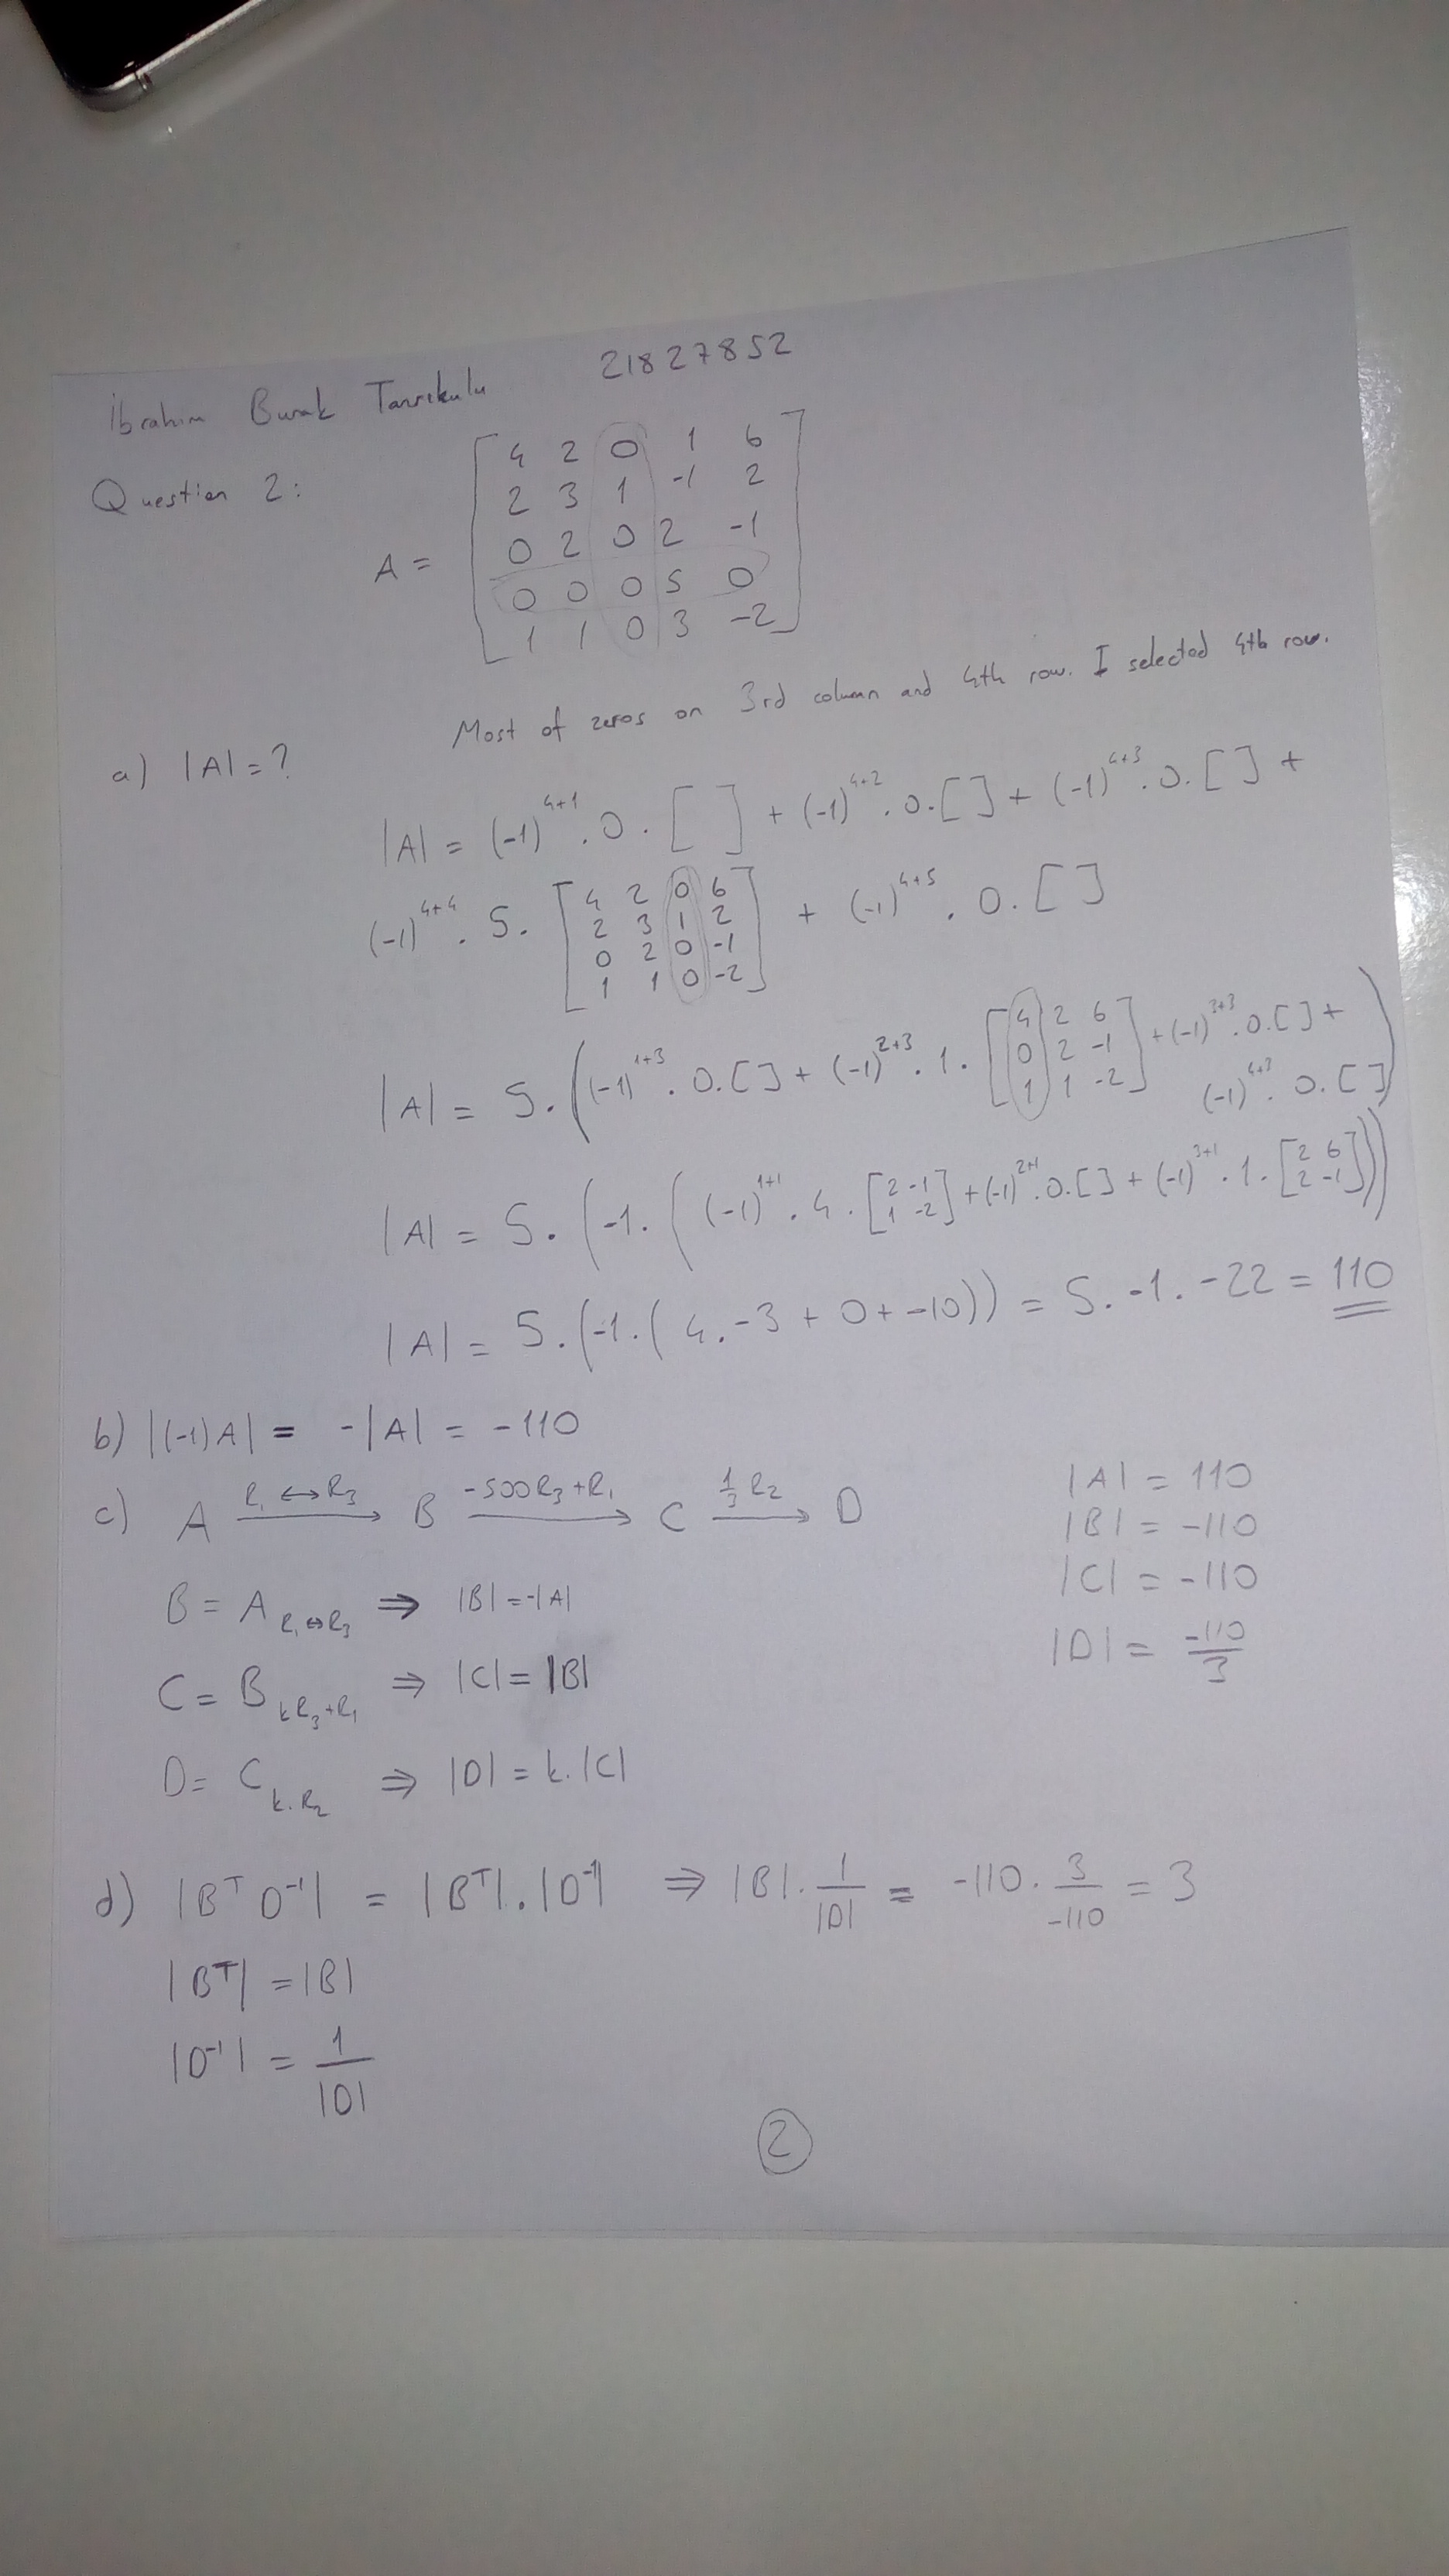 İbrahim Burak Tanrıkulu 21827852
Question 2:
A = [ 4 2 0 1 6
2 3 1 -1 2
0 2 0 2 -1
0 0 0 5 0
1 1 0 3 -2 ]
Most of zeros on 3rd column and 4th row. I selected 4th row.
a) |A| = ?
|A| = (-1)^4+1 . 0 . [ ] + (-1)^4+2 . 0 . [ ] + (-1)^4+3 . 0 . [ ] +
(-1)^4+4 . 5 . [ 4 2 0 6
2 3 1 2
0 2 0 -1
1 1 0 -2 ] + (-1)^4+5 . 0 . [ ]
|A| = 5 . ( (-1)^1+3 . 0 . [ ] + (-1)^2+3 . 1 . [ 4 2 6
0 2 -1
1 1 -2 ] + (-1)^3+3 . 0 . [ ] +
(-1)^4+3 . 0 . [ ] )
|A| = 5 . ( -1 . ( (-1)^1+1 . 4 . [ 2 -1
1 -2 ] + (-1)^2+1 . 0 . [ ] + (-1)^3+1 . 1 . [ 2 6
2 -1 ] ))
|A| = 5 . (-1 . ( 4 . -3 + 0 + -10)) = 5 . -1 . -22 = 110
b) |(-1)A| = -|A| = -110
c) A R₁ ↔ R₃ → B -500R₃+R₁ → C 1/3 R₂ → D
|A| = 110
|B| = -110
|C| = -110
|D| = -110/3
B = A R₁↔R₃ ⇒ |B| = -|A|
C = B kR₃+R₁ ⇒ |C| = |B|
D = C k.R₂ ⇒ |D| = k . |C|
d) |Bᵀ D⁻¹| = |Bᵀ| . |D⁻¹| ⇒ |B| . 1/|D| = -110 . 3/-110 = 3
|Bᵀ| = |B|
|D⁻¹| = 1/|D|
2